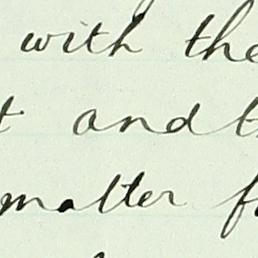 with the
and
matter